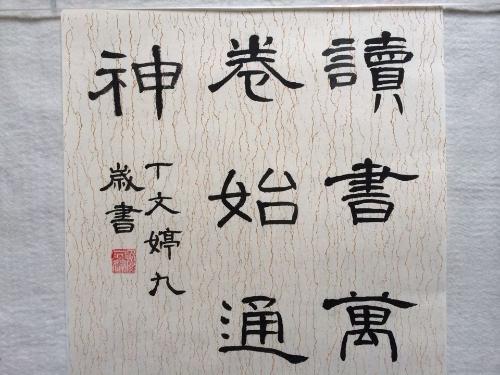 讀書萬
卷始通
神
丁文婷九
歲書